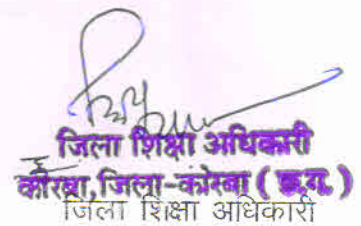 जिला शिक्षा अधिकारी
कोरबा, जिला-कोरबा ( छ.ग. )
जिला शिक्षा अधिकारी